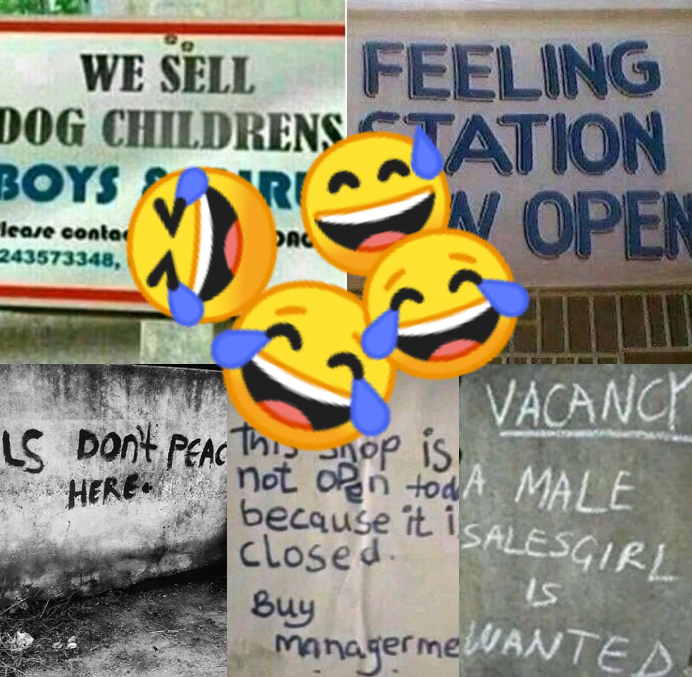 WE SELL
DOG CHILDRENS
BOYS &
243573348,
FEELING
STATION
OPEN
LS DON't PEAC
HERE.
This shop is
not open tod
because it i
closed.
Buy
managerme
VACANCY
A MALE
SALESGIRL
IS
WANTED